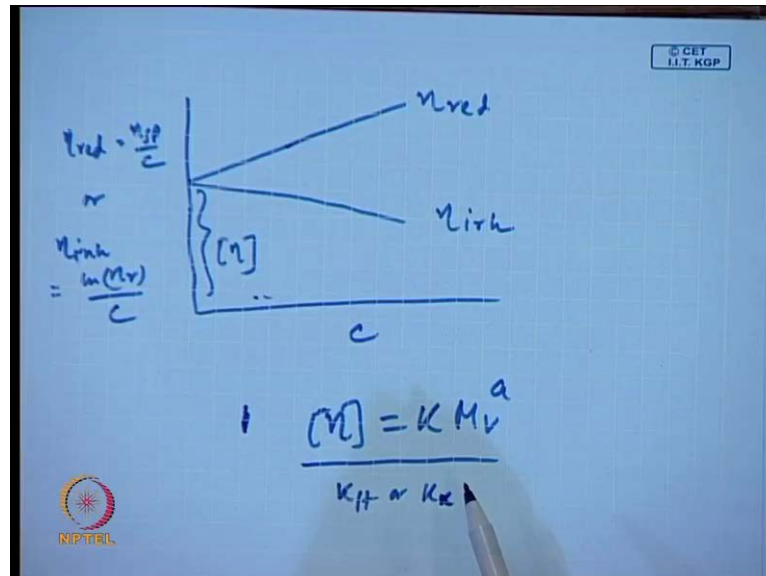 © CET
I.I.T. KGP
ηred
ηred = ηsp/C
or
ηinh
= ln(ηr)/C
[η]
ηinh
C
[η] = K Mv^a
KH or KK
NPTEL